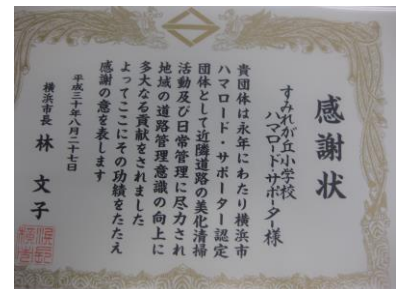 感謝状
すみれが丘小学校
ハマロード・サポーター様
貴団体は永年にわたり横浜市
ハマロード・サポーター認定
団体として近隣道路の美化清掃
活動及び日常管理に尽力され
地域の道路管理意識の向上に
多大なる貢献をされました
よってここにその功績をたたえ
感謝の意を表します
平成三十年八月二十七日
横浜市長 林 文子